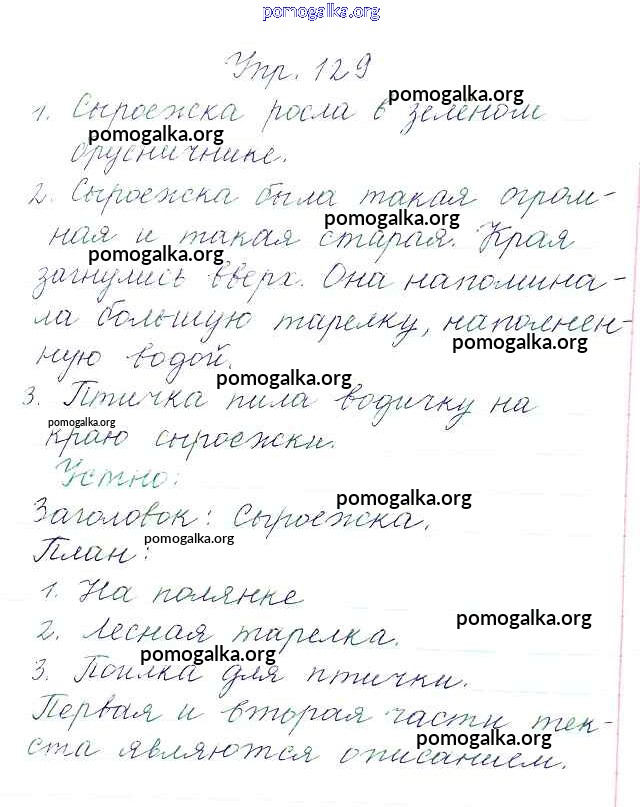 pomogalka.org
Упр. 129
1. Сыроежка росла в зеленом
pomogalka.org
pomogalka.org
брусничнике.
2. Сыроежка была такая огром-
pomogalka.org
ная и такая старая. Края
pomogalka.org
загнулись вверх. Она напомина-
ла большую тарелку, наполнен-
pomogalka.org
ную водой.
pomogalka.org
3. Птичка пила водичку на
pomogalka.org
краю сыроежки.
Устно:
pomogalka.org
Заголовок: Сыроежка.
pomogalka.org
План:
1. На полянке
pomogalka.org
2. Лесная тарелка.
pomogalka.org
3. Поилка для птички.
Первая и вторая части тек-
pomogalka.org
ста являются описанием.